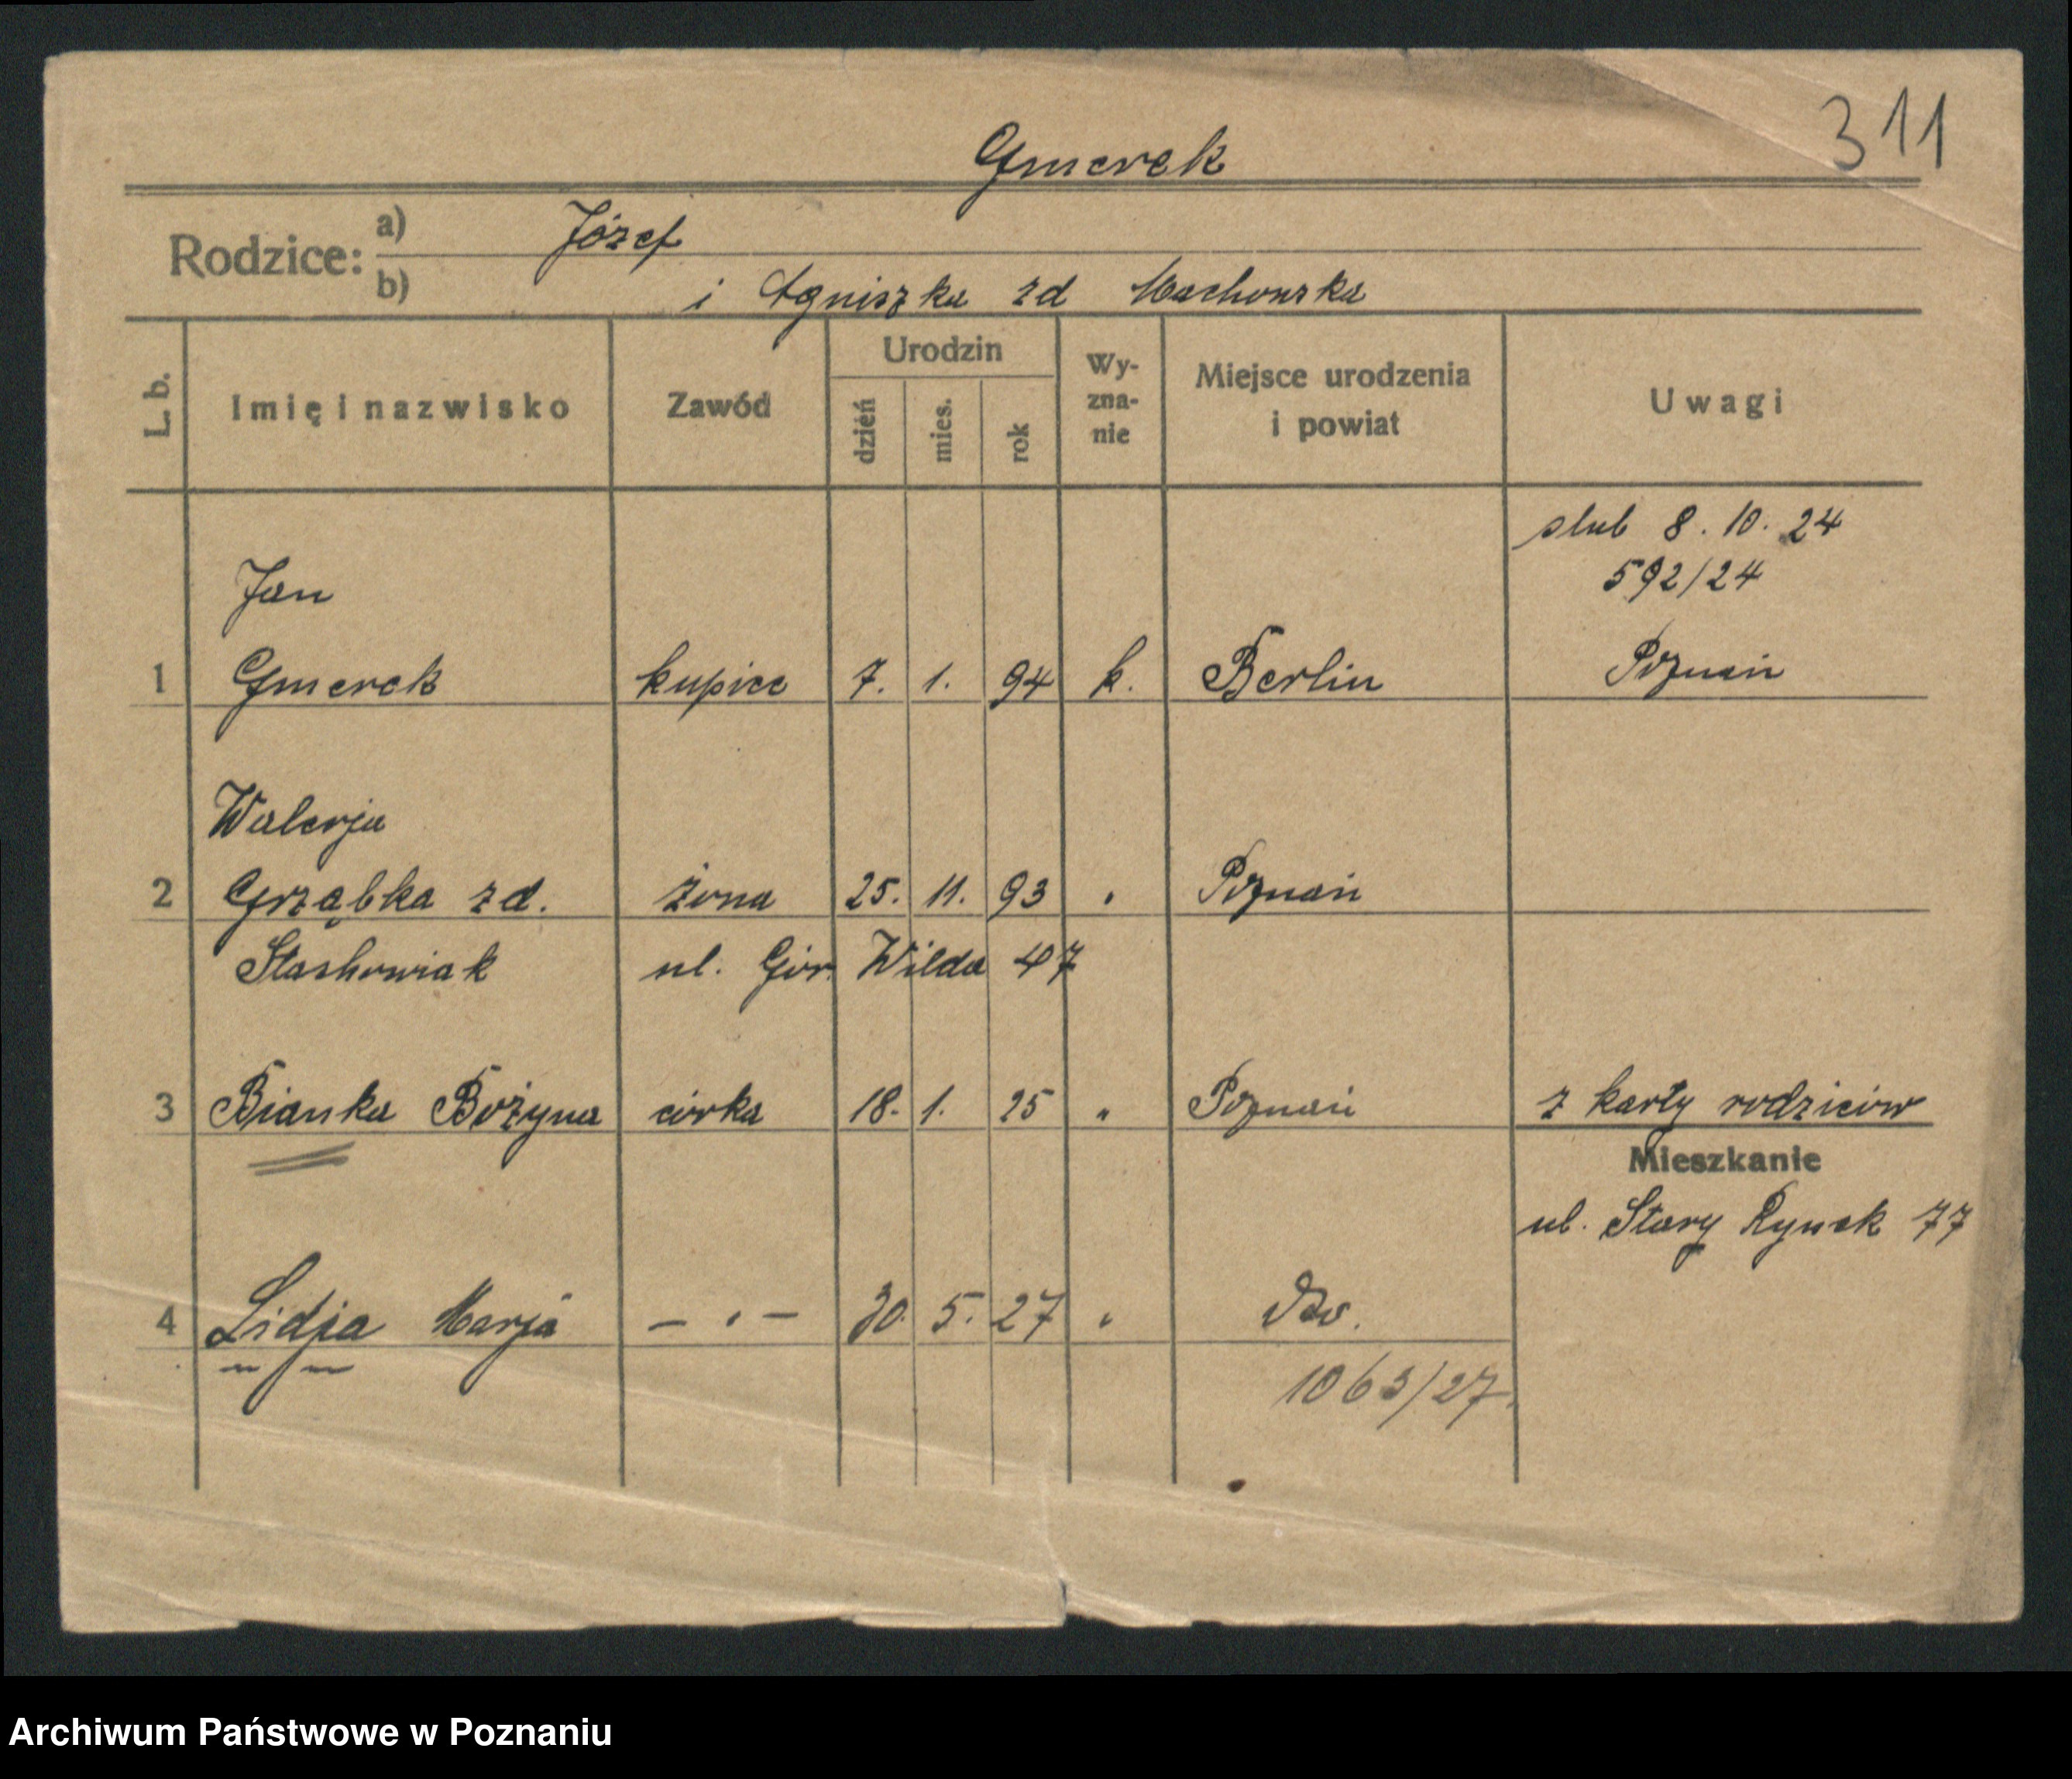 311
Gmerek
Rodzice: a) Józef
b) i Agniszka zd Machowska
L. b. Imię i nazwisko Zawód Urodzin dzień mies. rok Wy-zna-nie Miejsce urodzenia i powiat Uwagi
slub 8. 10. 24
592/24
Jan
1 Gmerek kupiec 7. 1. 94 k. Berlin Poznań
Walerja
2 Grząbka zd. żona 25. 11. 93 " Poznań
Stachowiak ul. Gór. Wilda 47
3 Bianka Bożyna córka 18. 1. 25 " Poznań z karty rodziców
Mieszkanie
ul. Stary Rynek 77
4 Lidja Marja — " — 30. 5. 27 "
1063/27.
Archiwum Państwowe w Poznaniu